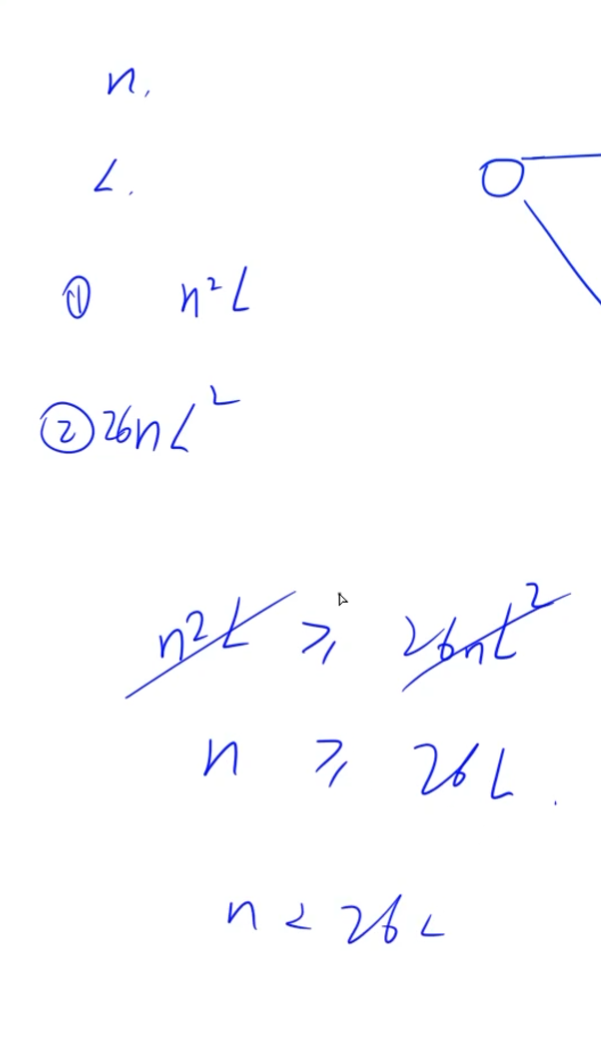 n,
L.
① n²L
② 26nL²
n²L ≥ 26nL²
n ≥ 26L.
n < 26L